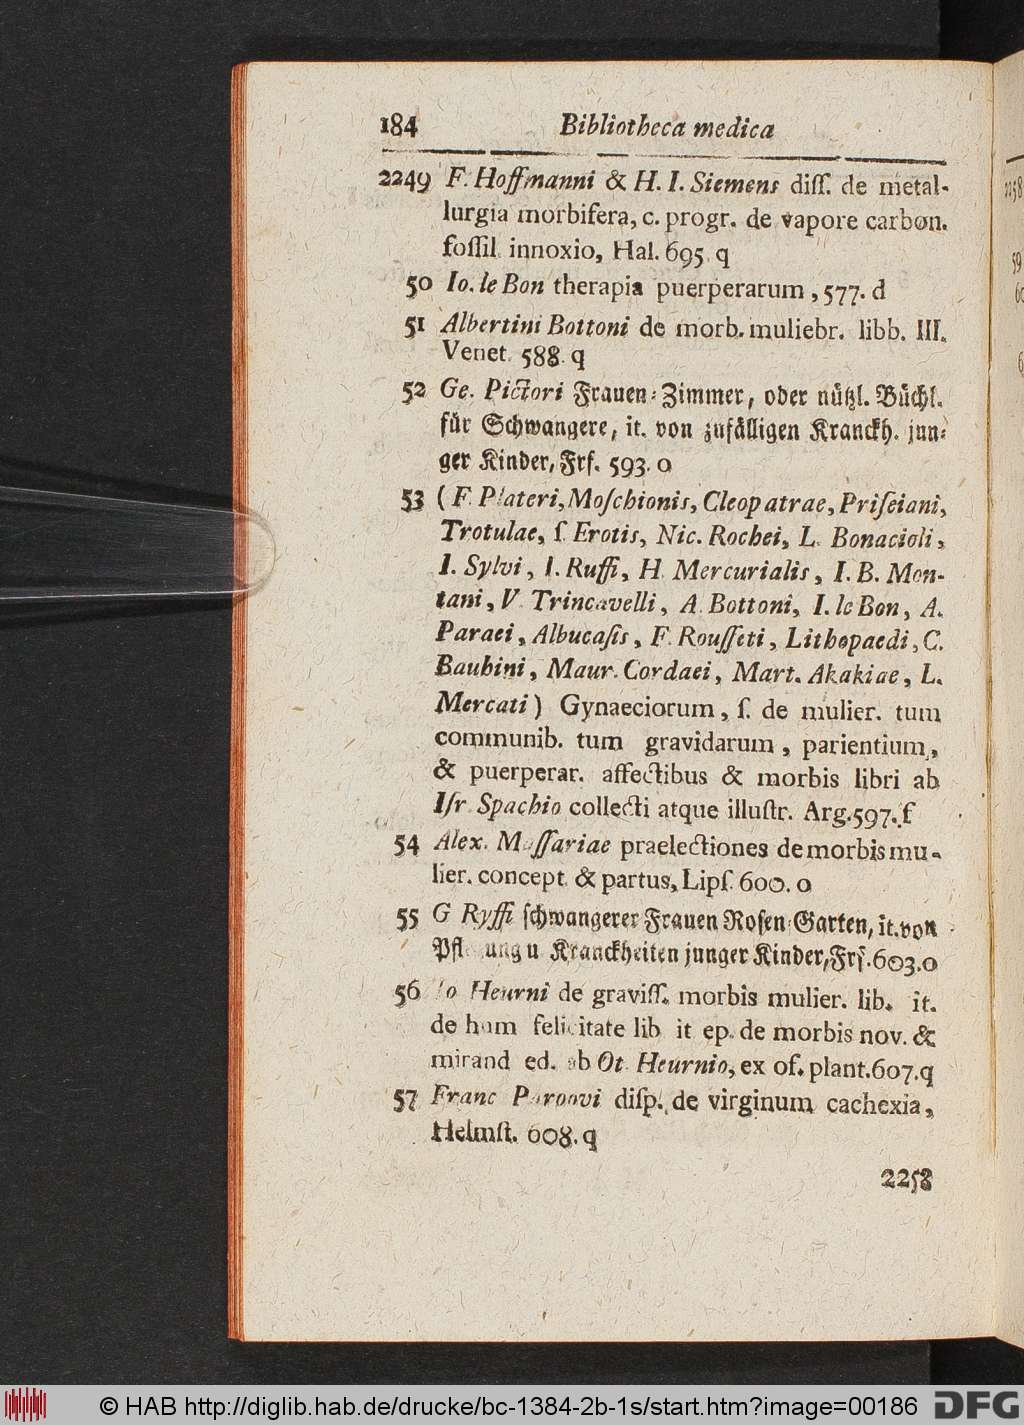 184 Bibliotheca medica
2249 F. Hoffmanni & H. I. Siemens diſſ. de metal-
lurgia morbifera, c. progr. de vapore carbon.
foſſil. innoxio, Hal. 695. q
50 Io. le Bon therapia puerperarum, 577. d
51 Albertini Bottoni de morb. muliebr. libb. III.
Venet. 588. q
52 Ge. Pictori Frauen-Zimmer, oder nützl. Büchl.
für Schwangere, it. von zufälligen Kranckh. jun-
ger Kinder, Frf. 593. o
53 (F. Plateri, Moſchionis, Cleopatrae, Priſeiani,
Trotulae, ſ. Erotis, Nic. Rochei, L. Bonacioli,
I. Sylvi, I. Ruffi, H. Mercurialis, I. B. Mon-
tani, V. Trincavelli, A. Bottoni, I. le Bon, A.
Paraei, Albucaſis, F. Rouſſeti, Lithopaedi, C.
Bauhini, Maur. Cordaei, Mart. Akakiae, L.
Mercati) Gynaeciorum, ſ. de mulier. tum
communib. tum gravidarum, parientium,
& puerperar. affectibus & morbis libri ab
Iſr. Spachio collecti atque illuſtr. Arg. 597. f
54 Alex. Maſſariae praelectiones de morbis mu-
lier. concept. & partus, Lipſ. 600. o
55 G Ryffi ſchwangerer Frauen Roſen-Garten, it. von
u Kranckheiten junger Kinder, Frf. 603. o
56 Io Heurni de graviſſ. morbis mulier. lib. it.
de hum felicitate lib it ep. de morbis nov. &
mirand ed. ab Ot. Heurnio, ex of. plant. 607. q
57 Franc diſp. de virginum cachexia,
Helmſt. 608. q
2258
2258
59
© HAB http://diglib.hab.de/drucke/bc-1384-2b-1s/start.htm?image=00186
DFG